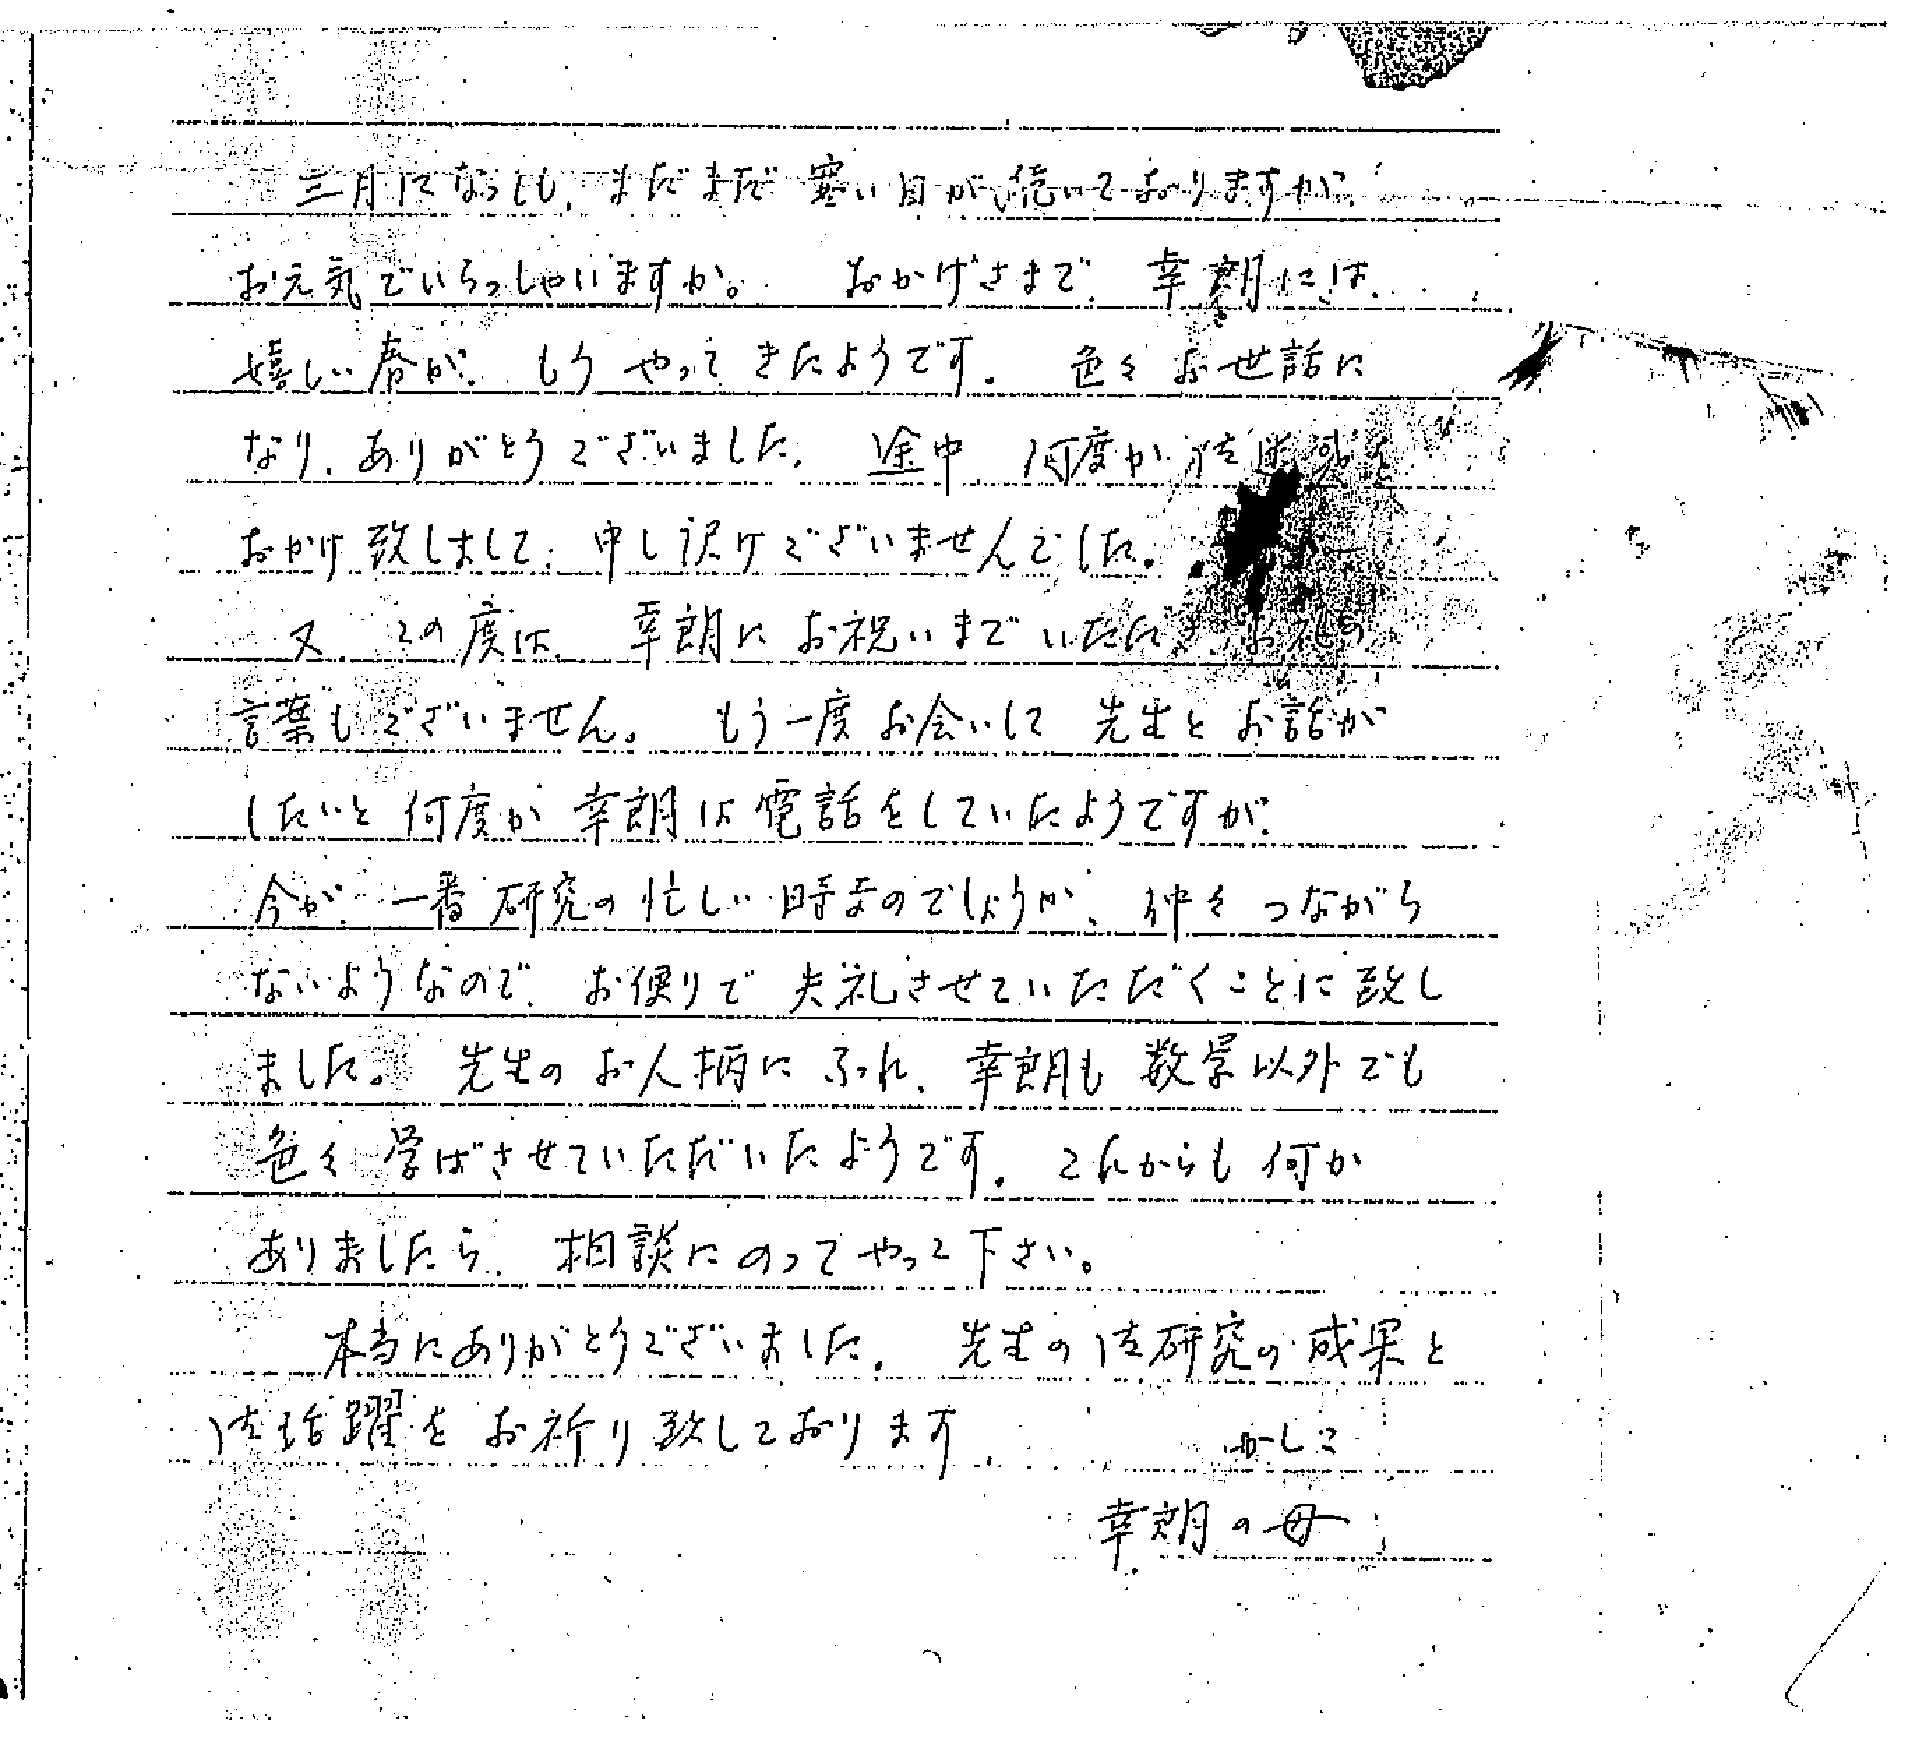 三月になっても、まだまだ寒い日が続いておりますが、
お元気でいらっしゃいますか。 おかげさまで、幸朗には、
嬉しい春が、もうやってきたようです。 色々お世話に
なり、ありがとうございました。 途中、何度か御迷惑を
おかけ致しまして、申し訳けございませんでした。
又、この度は、幸朗にお祝いまでいただき、お礼の
言葉もございません。 もう一度お会いして 先生とお話が
したいと何度か幸朗は電話をしていたようですが、
今が、一番研究の忙しい時なのでしょうか、仲々つながら
ないようなので、お便りで失礼させていただくことに致し
ました。 先生のお人柄にふれ、幸朗も数学以外でも
色々学ばさせていただいたようです。これからも何か
ありましたら、相談にのってやって下さい。
本当にありがとうございました。 先生の御研究の成果と
御活躍をお祈り致しております。 かしこ
幸朗の母